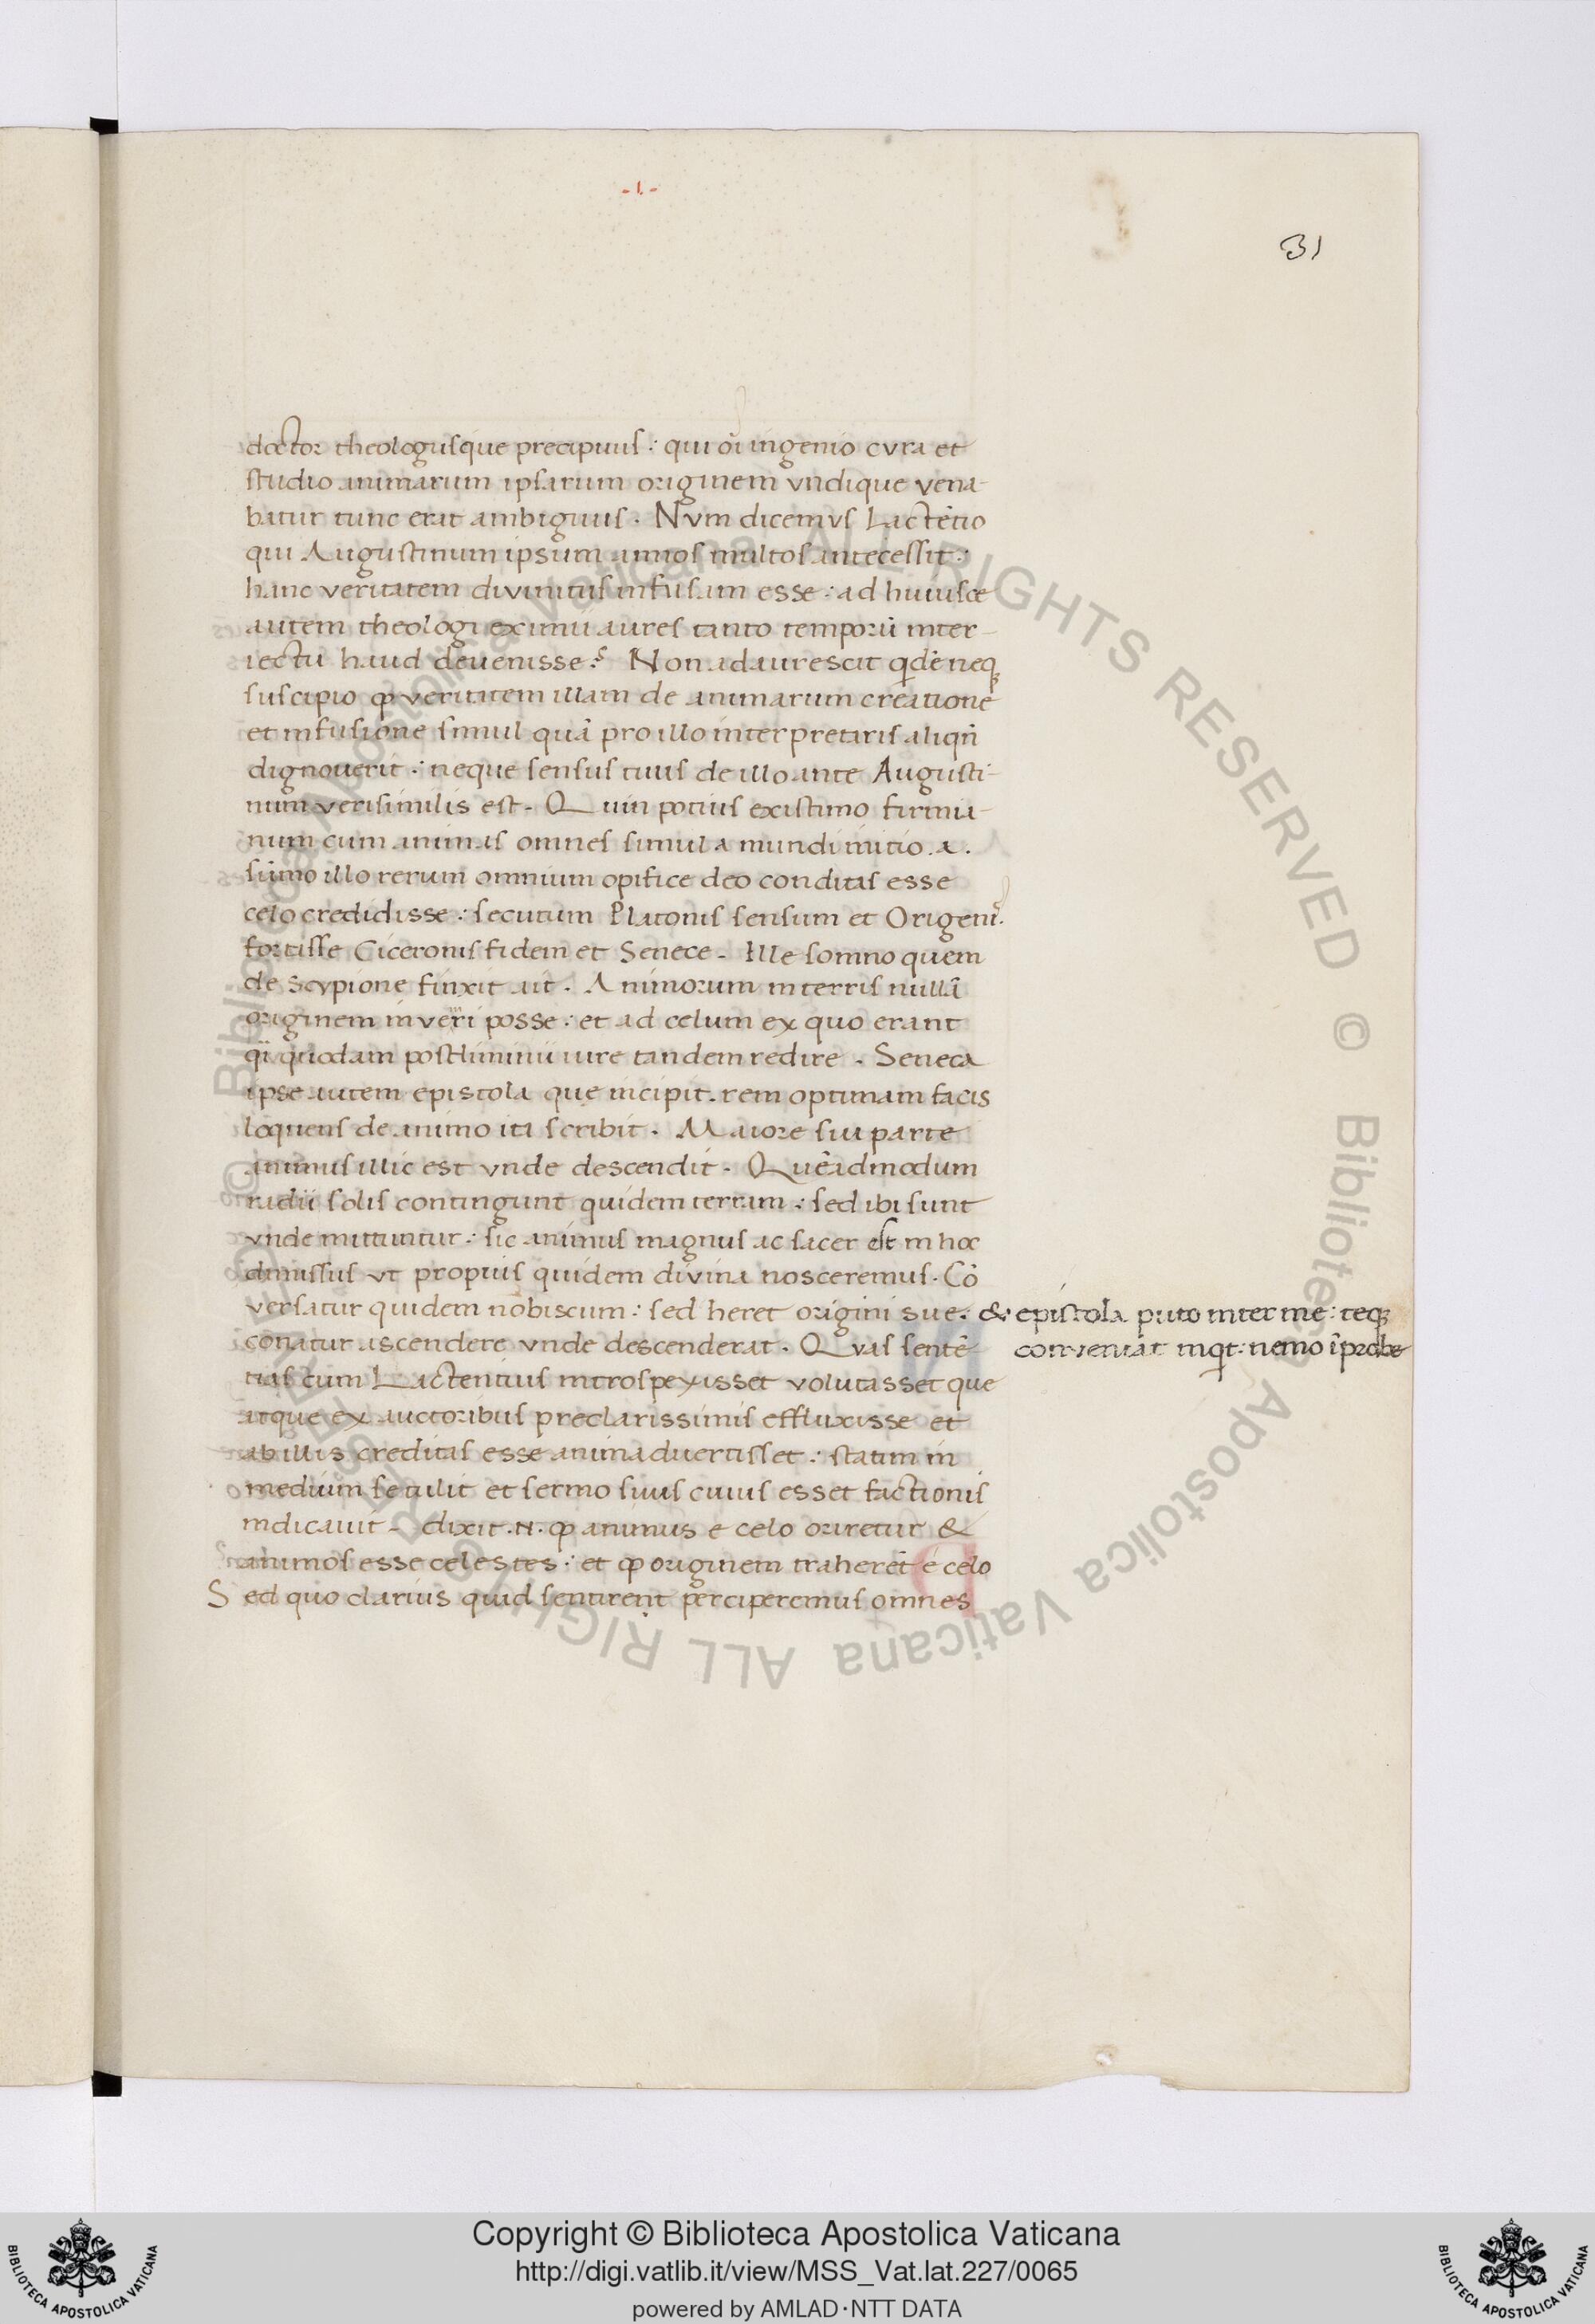 -I.-
31
doctor theologusque precipuus: qui oi ingenio cura et
studio animarum ipsarum originem undique vena-
batur tunc erat ambiguus. Num dicemus Lactētio
qui Augustinum ipsum annos multos antecessit:
hanc veritatem divinitus infusam esse: ad huiusce
autem theologi eximii aures tanto temporū inter-
iectu haud devenisse? Non ad aures cit qdē neq
suscipio ꝙ veritatem illam de animarum creatione
et infusione simul quā pro illo interpretaris aliqn̄
dignoverit: neque sensus tuus de illo ante Augusti-
num verisimilis est. Quin potius existimo firmia-
num cum animas omnes simul a mundi initio .a.
sūmo illo rerum omnium opifice deo conditas esse
celo credidisse: secutum Platonis sensum et Origenis
fortasse Ciceronis fidem et Senece. Ille somno quem
de scypione finxit ait. Animorum in terris nullā
originem inveri posse: et ad celum ex quo erant
qi quodam postliminii iure tandem redire. Seneca
ipse autem epistola que incipit. rem optimam facis
loquens de animo ita scribit. Maiore sui parte
animus illic est unde descendit. Quēadmodum
radii solis contingunt quidem terram: sed ibi sunt
unde mittuntur: sic animus magnus ac sacer est in hoc
dimissus ut propius quidem divina nosceremus. Cō
versatur quidem nobiscum: sed heret origini sue. & epistola puto inter me: teq
conatur ascendere unde descenderat. Quas sentē- conveniat inqt: nemo īprobe
tias cum Lactentius introspexisset volutasset que
atque ex auctoribus preclarissimis effluxisse et
ab illis creditas esse animadvertisset: statim in
medium se tulit et sermo suus cuius esset factionis
indicavit. dixit .n. ꝙ animus e celo oriretur &
animos esse celestes: et ꝙ originem traherēt e celo
Sed quo clarius quid sentirent perciperemus omnes
© Biblioteca Apostolica Vaticana ALL RIGHTS RESERVED
© Biblioteca Apostolica Vaticana ALL RIGHTS RESERVED
Copyright © Biblioteca Apostolica Vaticana
http://digi.vatlib.it/view/MSS_Vat.lat.227/0065
powered by AMLAD·NTT DATA
BIBLIOTECA APOSTOLICA VATICANA
BIBLIOTECA APOSTOLICA VATICANA